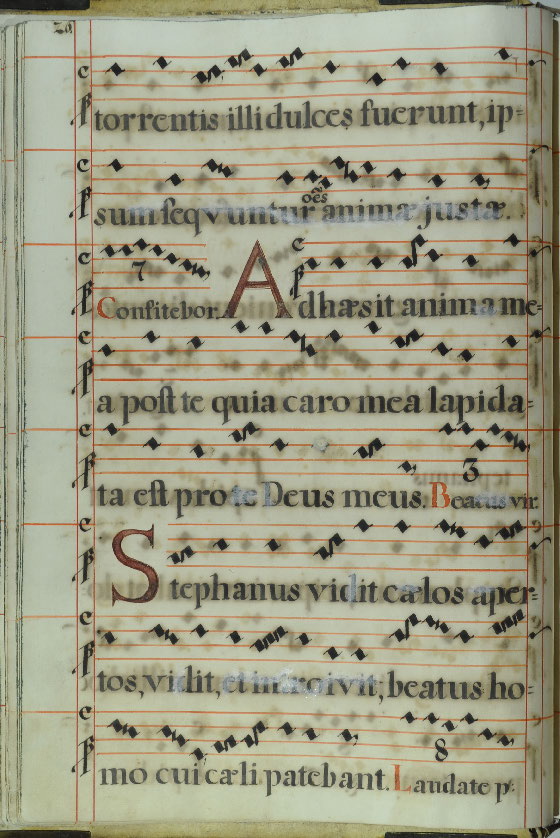 torrentis illi dulces fuerunt, ip=
sum seqvuntur oēs animæ justæ.
7
Confitebor. Adhæsit anima me=
a post te quia caro mea lapida=
ta est pro te Deus meus. Beatus vir.
3
Stephanus vidit cælos aper=
tos, vidit, et introivit, beatus ho=
mo cui cæli patebant. Laudate p.
8